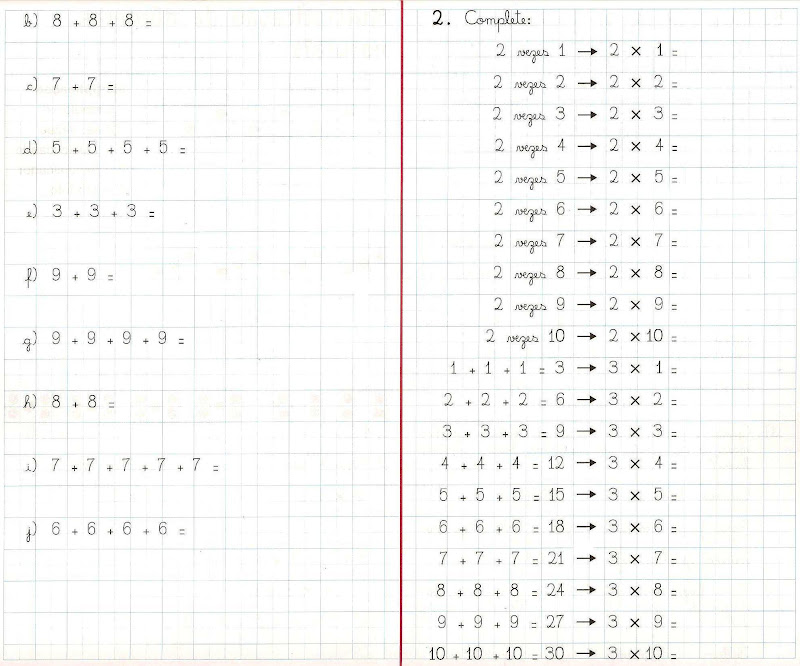 b) 8 + 8 + 8 =
c) 7 + 7 =
d) 5 + 5 + 5 + 5 =
e) 3 + 3 + 3 =
f) 9 + 9 =
g) 9 + 9 + 9 + 9 =
h) 8 + 8 =
i) 7 + 7 + 7 + 7 + 7 =
j) 6 + 6 + 6 + 6 =
2. Complete:
2 vezes 1 → 2 × 1 =
2 vezes 2 → 2 × 2 =
2 vezes 3 → 2 × 3 =
2 vezes 4 → 2 × 4 =
2 vezes 5 → 2 × 5 =
2 vezes 6 → 2 × 6 =
2 vezes 7 → 2 × 7 =
2 vezes 8 → 2 × 8 =
2 vezes 9 → 2 × 9 =
2 vezes 10 → 2 × 10 =
1 + 1 + 1 = 3 → 3 × 1 =
2 + 2 + 2 = 6 → 3 × 2 =
3 + 3 + 3 = 9 → 3 × 3 =
4 + 4 + 4 = 12 → 3 × 4 =
5 + 5 + 5 = 15 → 3 × 5 =
6 + 6 + 6 = 18 → 3 × 6 =
7 + 7 + 7 = 21 → 3 × 7 =
8 + 8 + 8 = 24 → 3 × 8 =
9 + 9 + 9 = 27 → 3 × 9 =
10 + 10 + 10 = 30 → 3 × 10 =